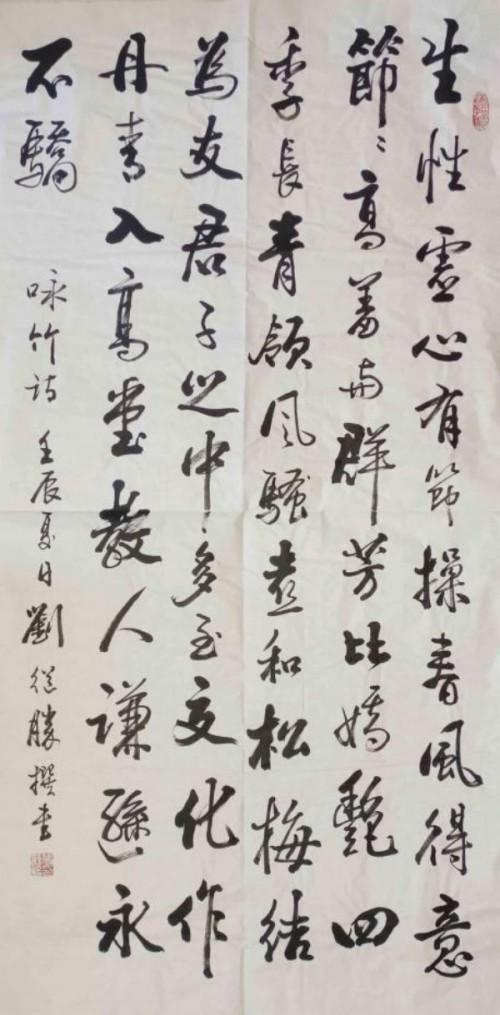 生性虛心有節操春風得意
節々高羞与群芳比嬌艷四
季長青領風騷喜和松梅结
為友君子丛中多至交化作
丹青入高堂教人謙遜永
不驕
咏竹诗 壬辰夏日 劉從勝撰书